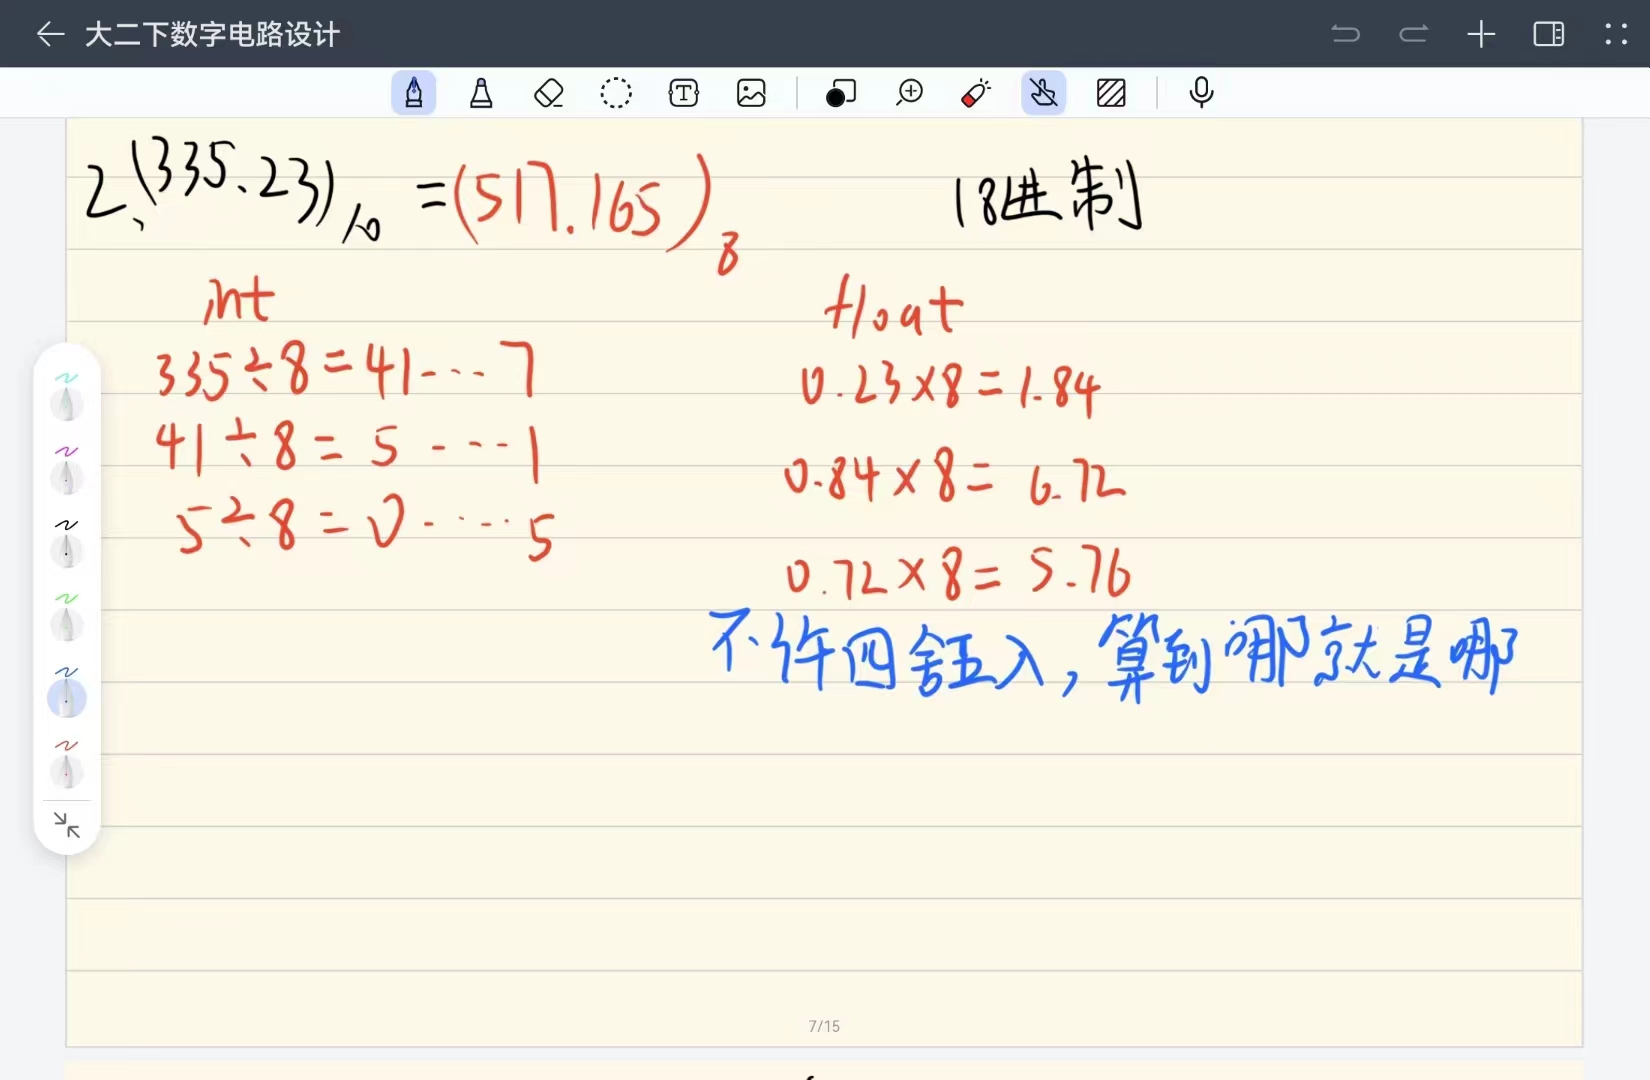 大二下数字电路设计
2、(335.23)₁₀ = (517.165)₈
18进制
int
335÷8=41···7
41÷8=5···1
5÷8=0····5
float
0.23×8=1.84
0.84×8=6.72
0.72×8=5.76
不许四舍五入，算到哪就是哪
7/15